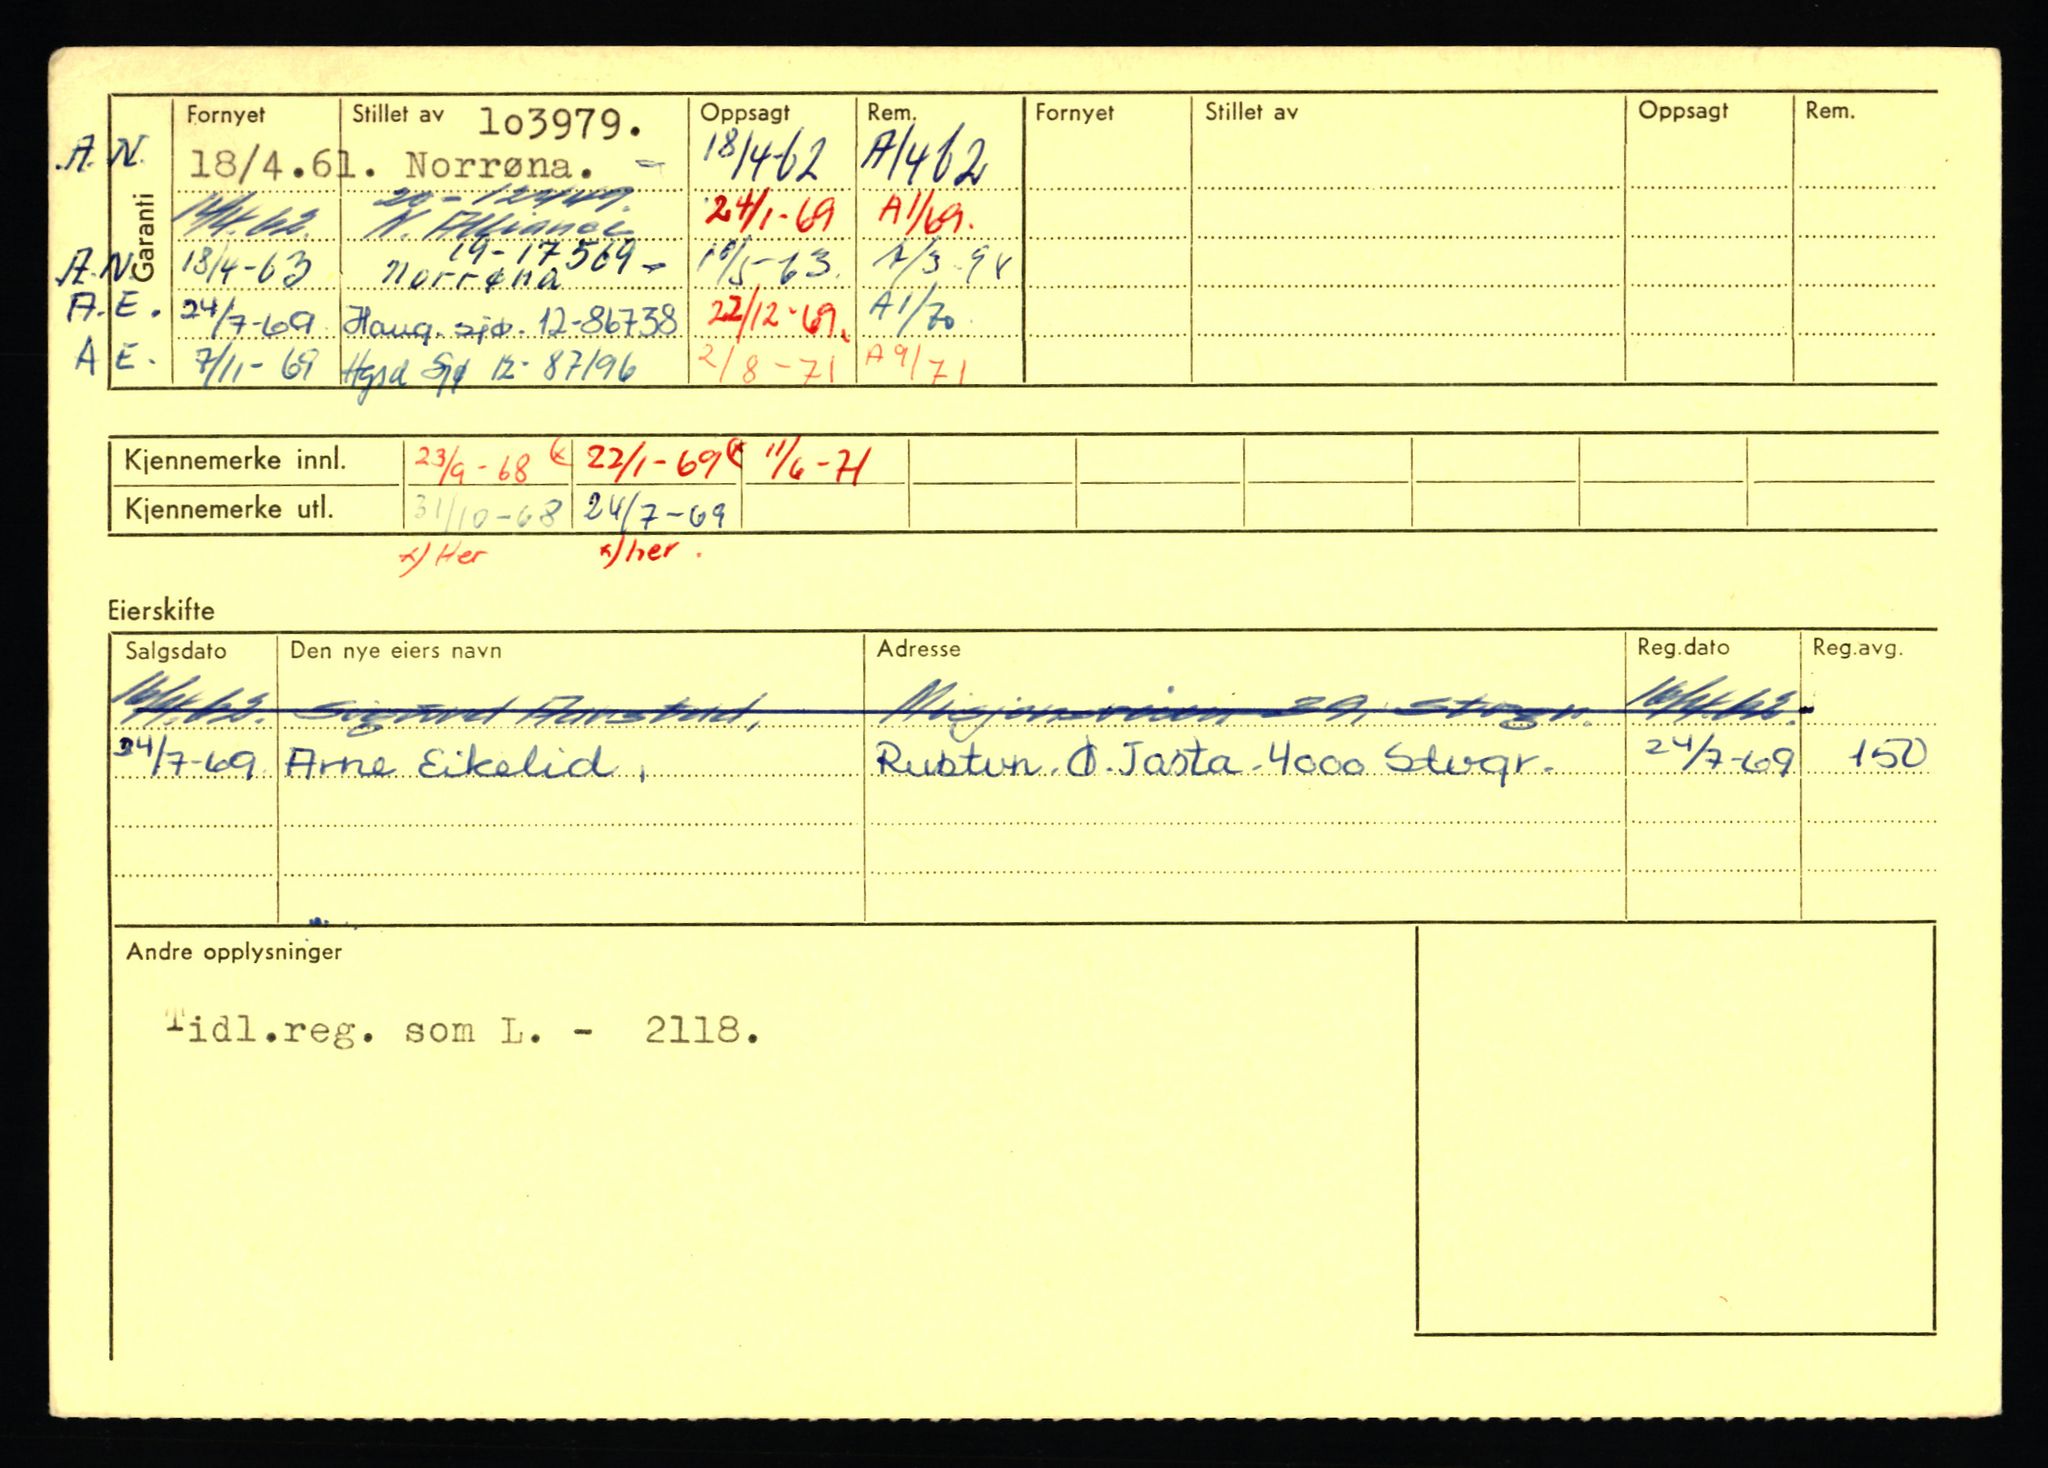 Fornyet Stillet av lo3979. Oppsagt Rem. Fornyet Stillet av Oppsagt Rem.
A. N. 18/4.61. Norrøna. - 18/4-62 A/4 62
Garanti
14/4.62. N. Allianse 24/1-69 A1/69.
19-17569
A.N. 18/4-63 Norrøna - 63.
A. E. 24/7-69 Haug. sjø. 12-86738 22/12-69. A1/70
A E. 7/11-69 Hgsd Sjø 12-87196 2/8-71 A9/71
Kjennemerke innl. 23/9-68 22/1-69 11/6-71
Kjennemerke utl. 31/10-68 24/7-69
x) Her x) her.
Eierskifte
Salgsdato Den nye eiers navn Adresse Reg.dato Reg.avg.
16/4.62. Sigurd Aanstad, 29, Stvgr. 16/4.62.
24/7-69 Arne Eikelid, Rustvn. Ø. Tasta 4000 Stvgr. 24/7-69 150
Andre opplysninger
Tidl.reg. som L. - 2118.